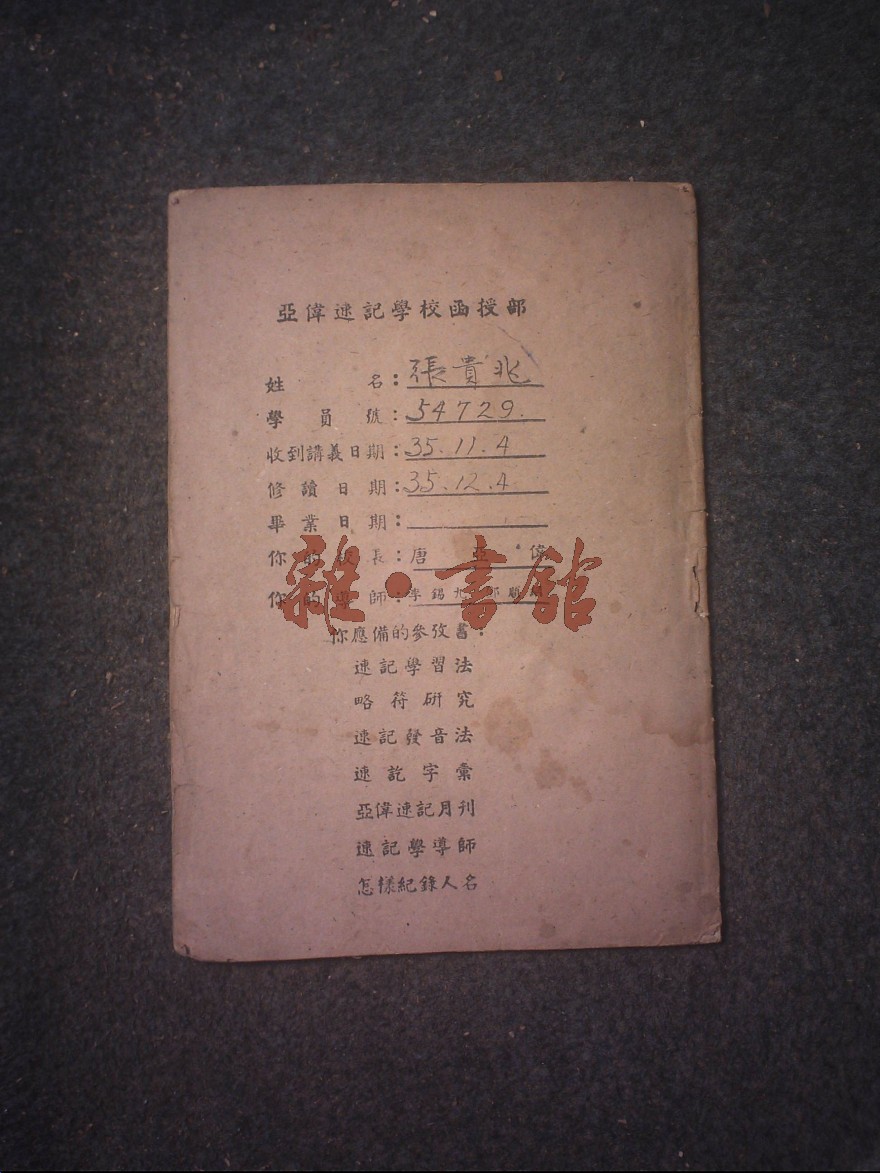 亞偉速記學校函授部
姓名：張貴兆
學員號：54729.
收到講義日期：35.11.4
修讀日期：35.12.4
畢業日期：
你的校長：唐亞偉
你的導師：李錫
雜·書館
你應備的參攷書：
速記學習法
略符研究
速記發音法
速記字彙
亞偉速記月刊
速記學導師
怎樣紀錄人名